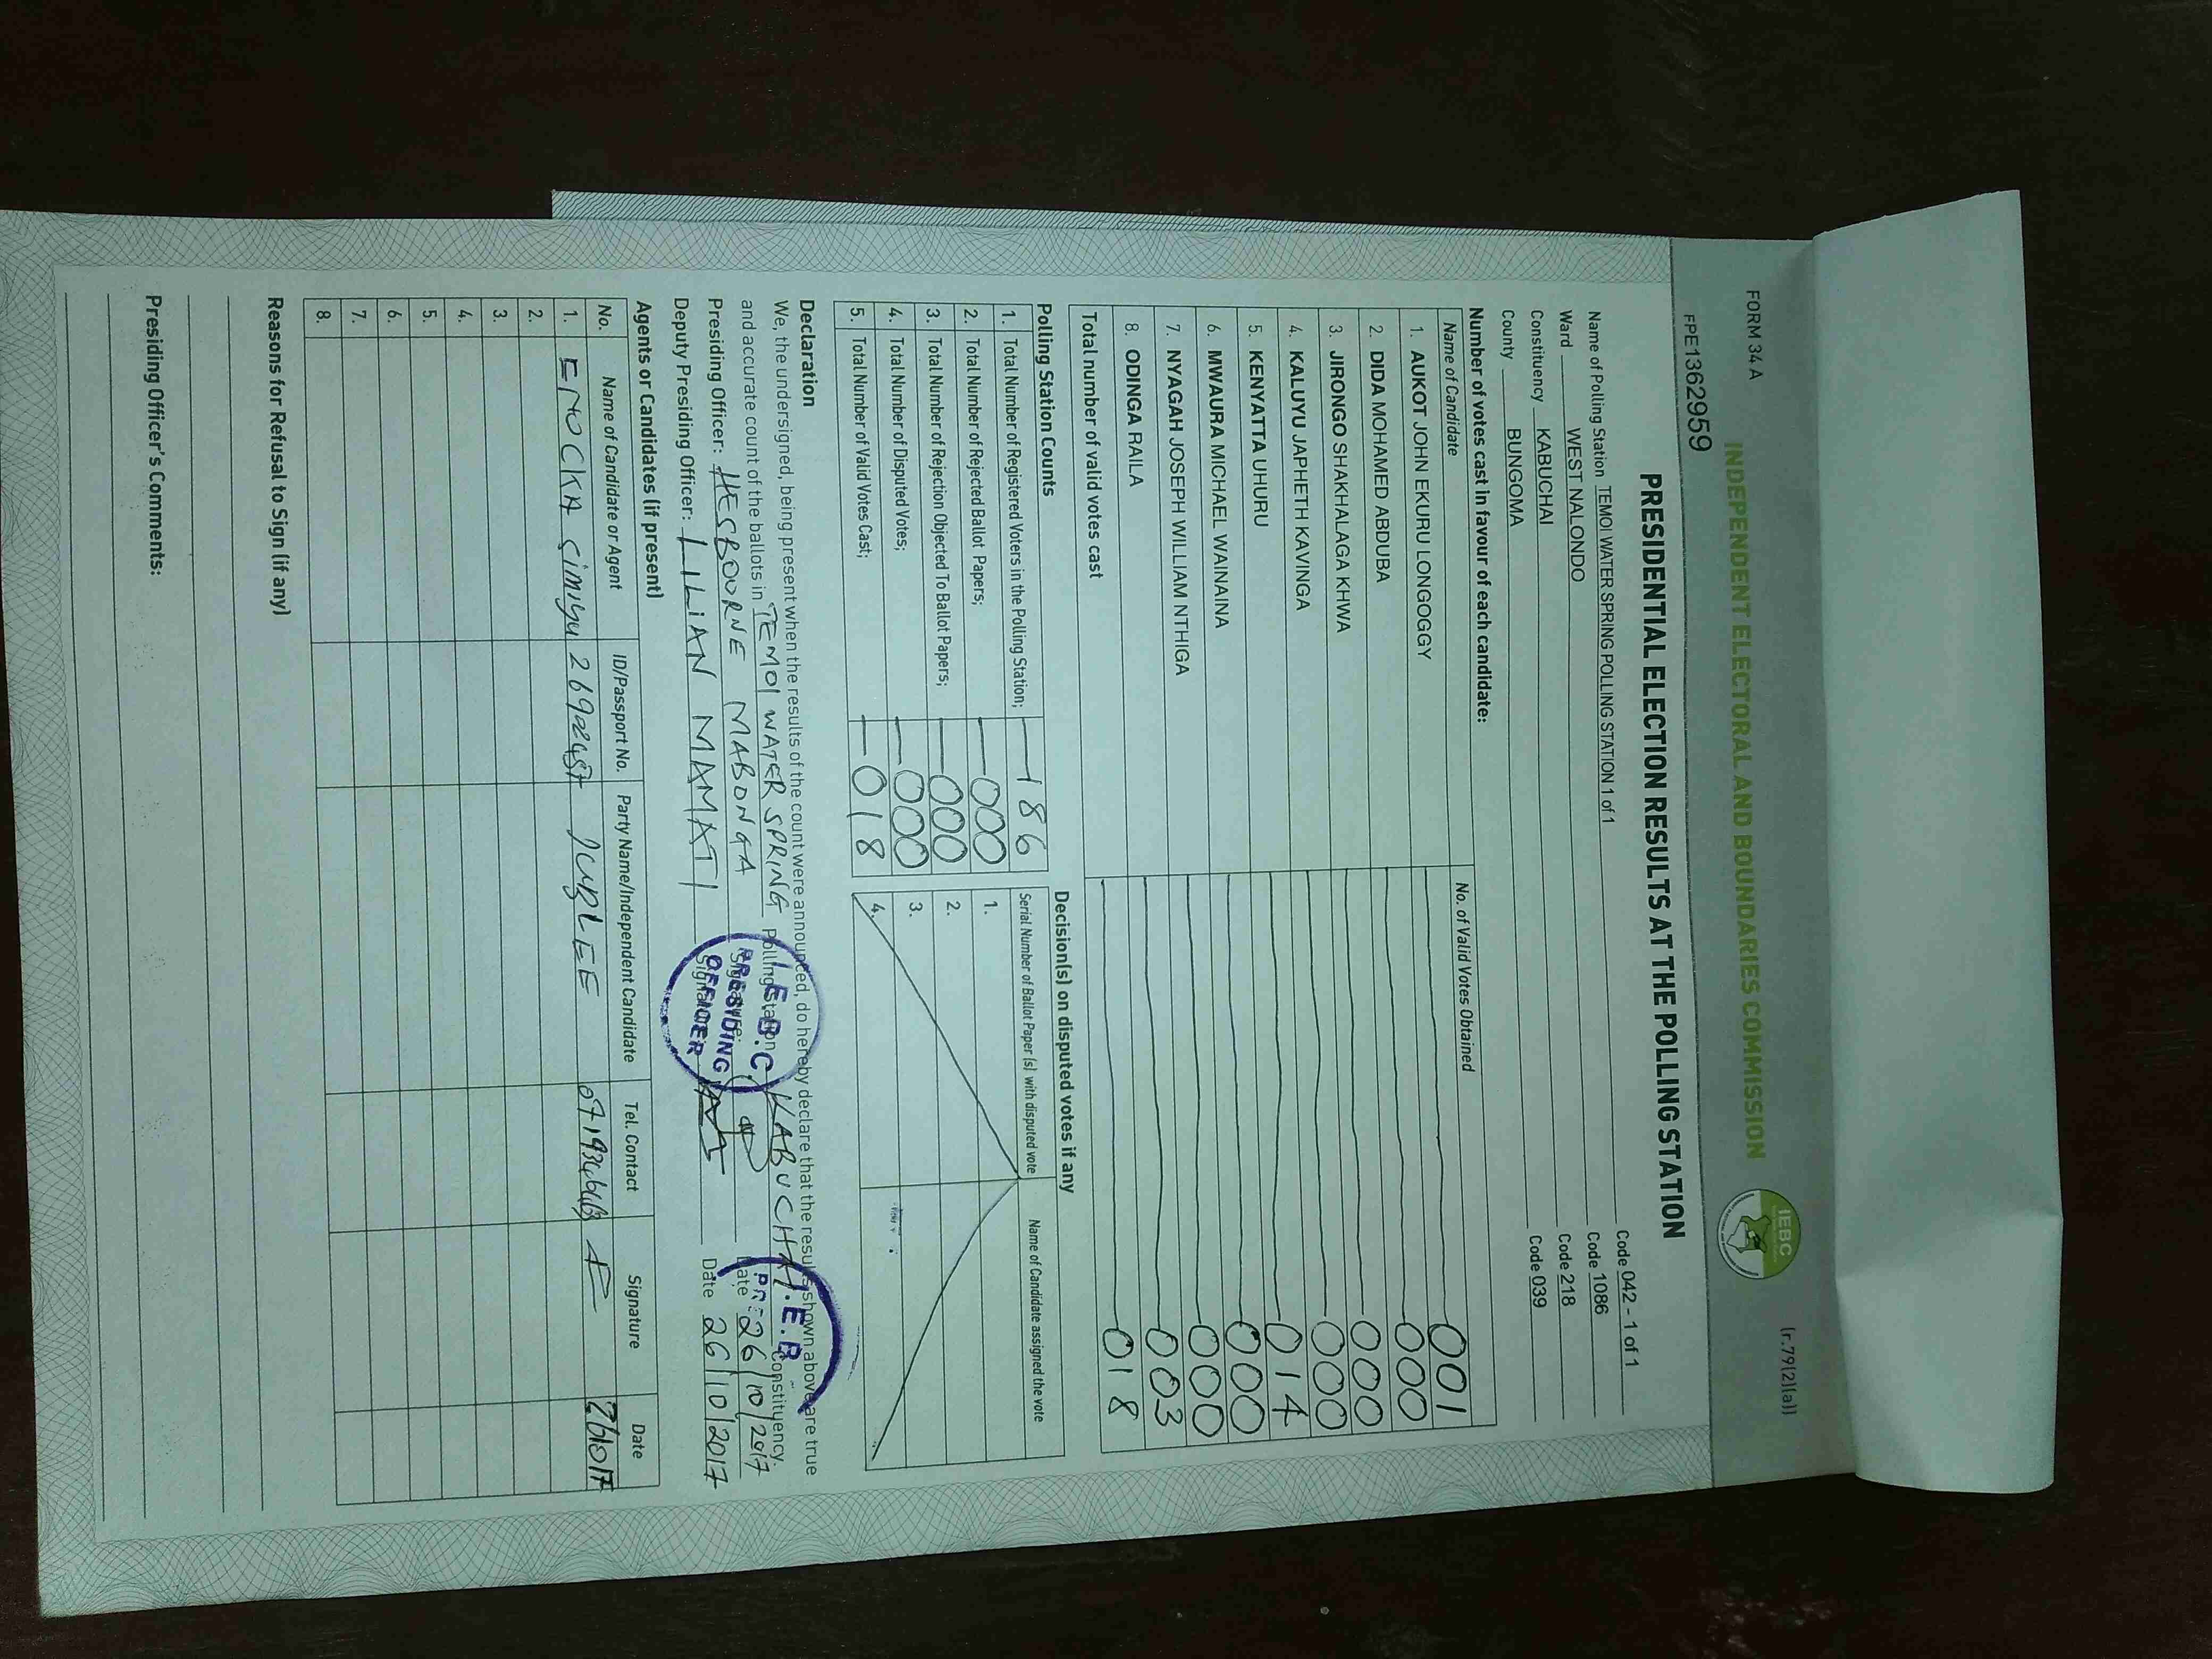 FORM 34 A
(r.79(2)(a))
INDEPENDENT ELECTORAL AND BOUNDARIES COMMISSION
IEBC
FPE1362959
PRESIDENTIAL ELECTION RESULTS AT THE POLLING STATION
Name of Polling Station TEMOI WATER SPRING POLLING STATION 1 of 1 Code 042 - 1 of 1
Ward WEST NALONDO Code 1086
Constituency KABUCHAI Code 218
County BUNGOMA Code 039
Number of votes cast in favour of each candidate:
Name of Candidate No. of Valid Votes Obtained
1. AUKOT JOHN EKURU LONGOGGY 001
2. DIDA MOHAMED ABDUBA 000
3. JIRONGO SHAKHALAGA KHWA 000
4. KALUYU JAPHETH KAVINGA 000
5. KENYATTA UHURU 014
6. MWAURA MICHAEL WAINAINA 000
7. NYAGAH JOSEPH WILLIAM NTHIGA 000
8. ODINGA RAILA 003
Total number of valid votes cast 018
Polling Station Counts
1. Total Number of Registered Voters in the Polling Station; 186
2. Total Number of Rejected Ballot Papers; 000
3. Total Number of Rejection Objected To Ballot Papers; 000
4. Total Number of Disputed Votes; 000
5. Total Number of Valid Votes Cast; 018
Decision(s) on disputed votes if any
Serial Number of Ballot Paper (s) with disputed vote Name of Candidate assigned the vote
1.
2.
3.
4.
Declaration
We, the undersigned, being present when the results of the count were announced, do hereby declare that the results shown above are true
and accurate count of the ballots in TEMOI WATER SPRING Polling Station KABUCHAI Constituency.
Presiding Officer: HESBOURNE MABONGA Signature: Date 26/10/2017
Deputy Presiding Officer: LILIAN MAMATI Signature: Date 26/10/2017
I.E.B.C.
PRESIDING
OFFICER
I.E.B
Agents or Candidates (if present)
No. Name of Candidate or Agent ID/Passport No. Party Name/Independent Candidate Tel. Contact Signature Date
1. ENOCKA Simiyu JUBLEE
2.
3.
4.
5.
6.
7.
8.
Reasons for Refusal to Sign (if any)
Presiding Officer's Comments: